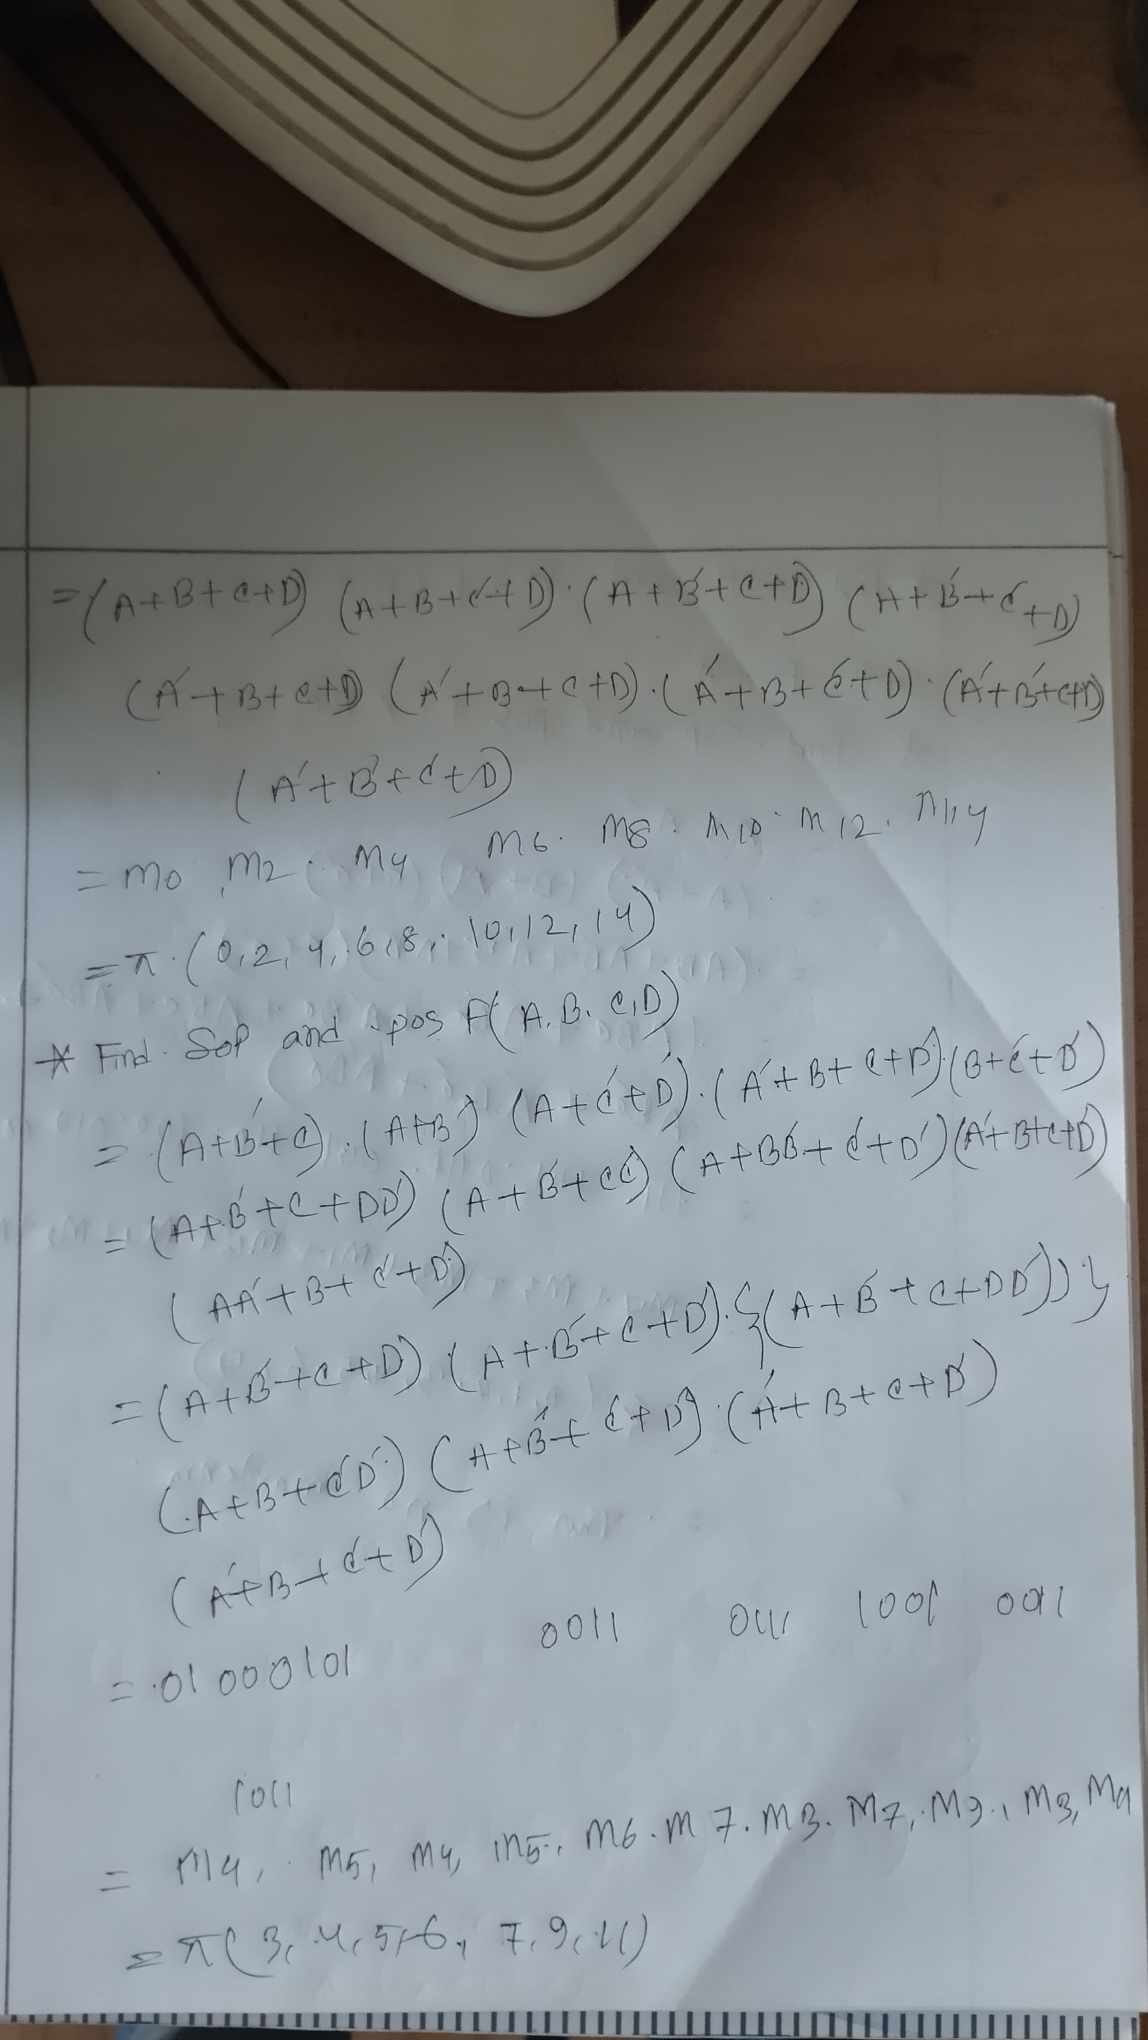 = (A+B+C+D) (A+B+C'+D) · (A+B'+C+D) (A+B'+C'+D)
(A'+B+C+D) (A'+B+C+D) · (A'+B+C'+D) · (A'+B'+C+D)
(A'+B'+C'+D)
= m0 . m2 . m4 m6 . m8 . m10 . m12 . m14
= π · (0, 2, 4, 6, 8, 10, 12, 14)
* Find Sop and pos F(A, B, C, D)
= (A+B'+C) . (A+B') (A+C'+D') . (A'+B+C+D') (B+C'+D')
= (A+B'+C+DD') (A+B'+CC') (A+BB'+C'+D') (A'+B+C+D')
(AA'+B+C'+D')
= (A+B'+C+D) (A+B'+C+D') . {(A+B'+C+DD')) }
(A+B+C'D') (A+B'+C'+D') . (A'+B+C+D')
(A'+B+C'+D')
= 01000101 0011 0111 1001 0011
1011
= M4, M5, M4, M5, M6 . M7 . M3 . M7, M9, M3, M9
= π (3, 4, 5, 6, 7, 9, 11)